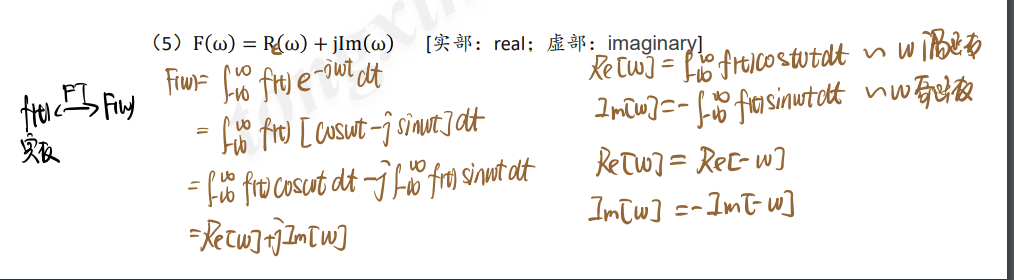 (5) F(ω) = Re(ω) + jIm(ω) [实部：real；虚部：imaginary]
f(t) <FT> F(w)
实函
F(w) = ∫_{-∞}^{∞} f(t) e^{-jwt} dt
= ∫_{-∞}^{∞} f(t) [coswt - j sinwt] dt
= ∫_{-∞}^{∞} f(t) coswt dt - j ∫_{-∞}^{∞} f(t) sinwt dt
= Re[w] + jIm[w]
Re[w] = ∫_{-∞}^{∞} f(t) coswt dt ~ w 偶函数
Im[w] = - ∫_{-∞}^{∞} f(t) sinwt dt ~ w 奇函数
Re[w] = Re[-w]
Im[w] = -Im[-w]